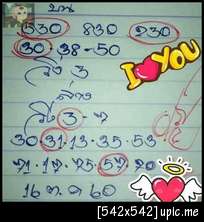 บน
530 830 230
30 . 38 - 50
วิ่ง 3
I YOU
ล่าง
วิ่ง 3 - 7
30 . 31 . 13 . 35 . 53
71 . 17 . 75 . 57 . 20
16 ต.ค 60
[542x542]upic.me